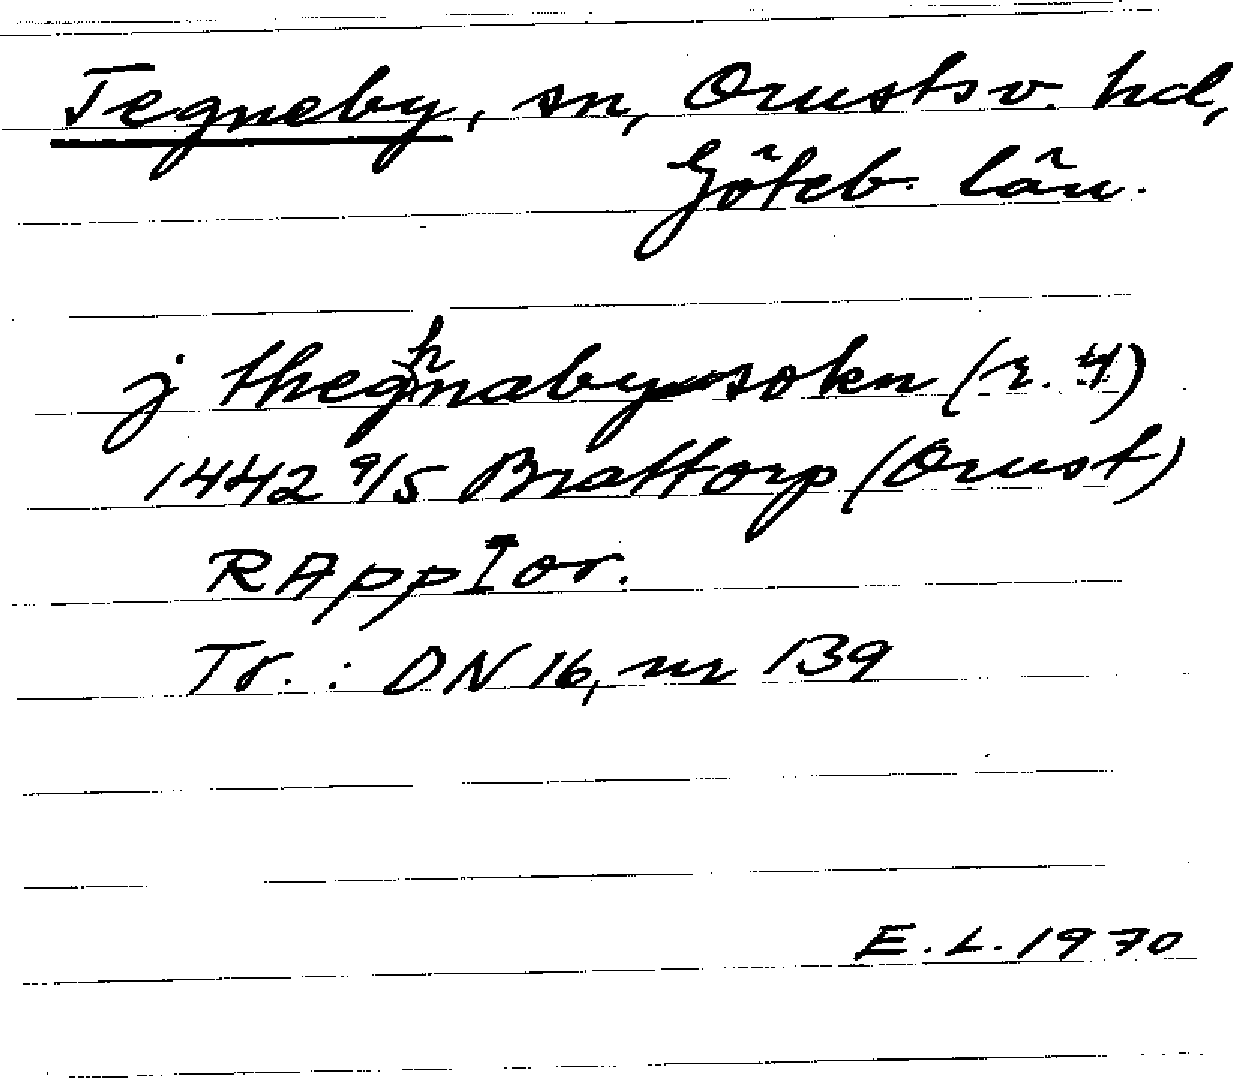 Tegneby, sn, Orusts v. hd,
Göteb. län.
j theghnabysokn (r. 4)
1442 9/5 Brattorp (Orust)
RAppIor.
Tr.: DN 16, nr 139
E. L. 1970